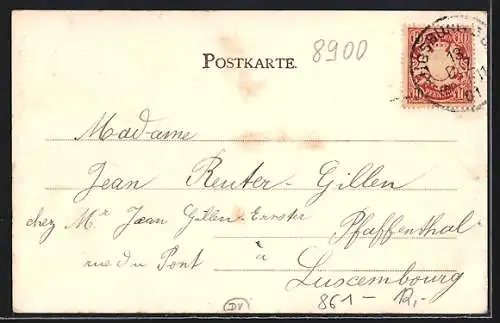 8900
POSTKARTE.
Madame
Jean Reuter-Gillen
chez Mr Jean Gillen-Ernster
Pfaffenthal
rue du Pont à
Luxembourg
861 — 12,-